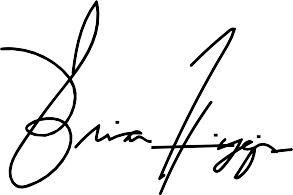 Brian Higgins